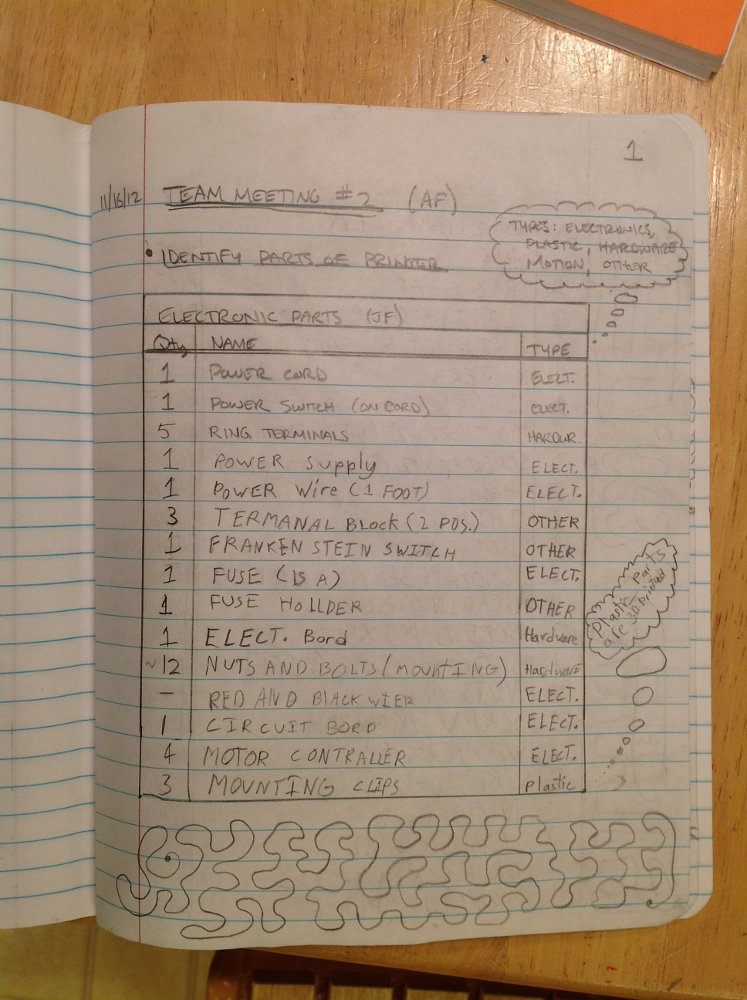 1
11/16/12 TEAM MEETING #2 (AF)
TYPES: ELECTRONICS,
PLASTIC, HARDWARE
MOTION, OTHER
• IDENTIFY PARTS OF PRINTER
ELECTRONIC PARTS (JF)
Qty NAME TYPE
1 POWER CORD ELECT.
1 POWER SWITCH (ON CORD) ELECT.
5 RING TERMINALS HARDWR.
1 POWER Supply ELECT.
1 POWER Wire (1 FOOT) ELECT.
3 TERMANAL Block (2 POS.) OTHER
1 FRANKENSTEIN SWITCH OTHER
1 FUSE (15 A) ELECT.
1 FUSE HOLLDER OTHER
1 ELECT. Bord Hardware
~12 NUTS AND BOLTS (MOUNTING) Hardware
- RED AND BLACK WIER ELECT.
1 CIRCUIT BORD ELECT.
4 MOTOR CONTRALLER ELECT.
3 MOUNTING CLIPS Plastic
Plastic Parts
are 3D Printed